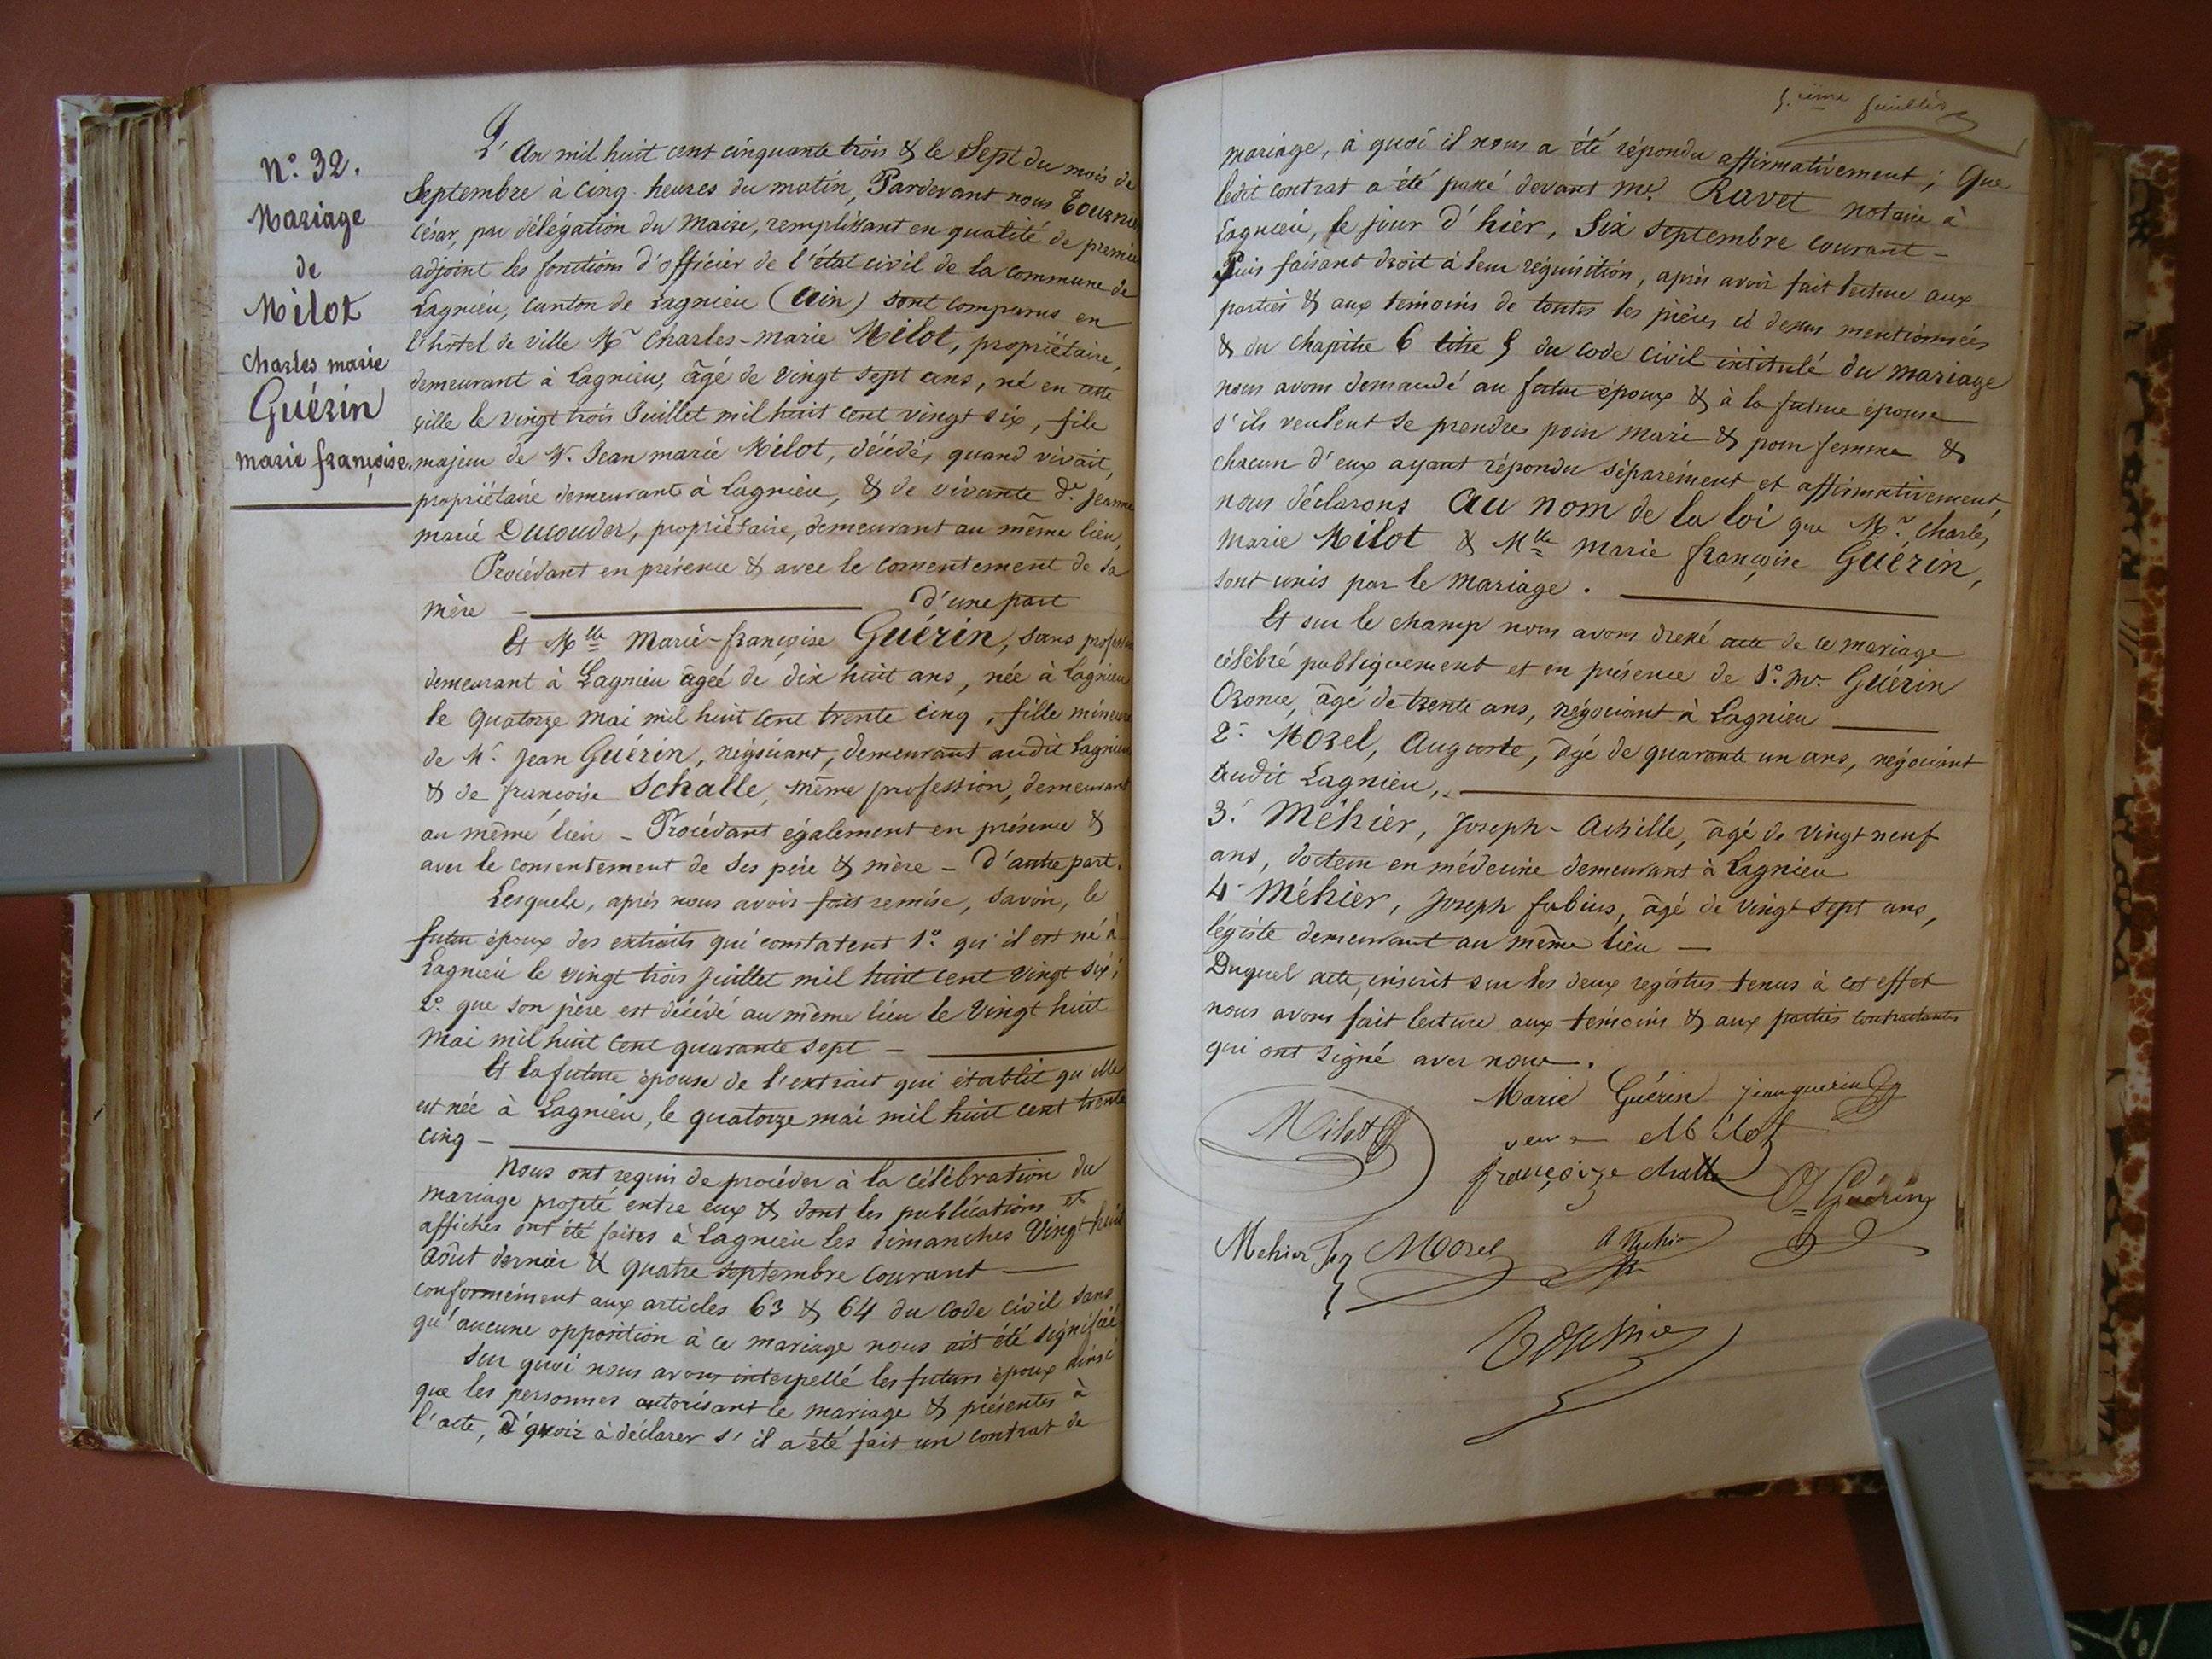 N.° 32.
Mariage
de
Milot
Charles marie
Guérin
marie françoise.
L'An mil huit cent cinquante trois & le Sept du mois de
Septembre à cinq heures du matin, Pardevant nous Tournier
César, par délégation du Maire, remplissant en qualité de premier
adjoint les fonctions d'officier de l'état civil de la commune de
Lagnieu, canton de Lagnieu (Ain) sont comparus en
l'hôtel de ville Mr Charles-marie Milot, propriétaire,
demeurant à Lagnieu, âgé de vingt sept ans, né en cette
ville le vingt trois Juillet mil huit cent vingt six, fils
majeur de Mr. Jean marie Milot, décédé, quand vivait,
propriétaire demeurant à Lagnieu, & de vivante de. Jeanne
marie Ducouder, propriétaire, demeurant au même lieu,
Procédant en présence & avec le consentement de sa
mère — d'une part
Et Mlle Marie-françoise Guérin, sans profession
demeurant à Lagnieu âgée de dix huit ans, née à Lagnieu
le quatorze mai mil huit cent trente cinq, fille mineure
de Mr. Jean Guérin, négociant, demeurant audit Lagnieu
& de françoise Schalle, même profession, demeurant
au même lieu – Procédant également en présence &
avec le consentement de ses père & mère – d'autre part.
Lesquels, après nous avoir fait remise, savoir, le
futur époux des extraits qui constatent 1° qu'il est né à
Lagnieu le vingt trois juillet mil huit cent vingt six;
2° que son père est décédé au même lieu le vingt huit
mai mil huit cent quarante sept —
Et la future épouse de l'extrait qui établit qu'elle
est née à Lagnieu, le quatorze mai mil huit cent trente
cinq —
Nous ont requis de procéder à la célébration du
mariage projeté entre eux & dont les publications et
affiches ont été faites à Lagnieu les dimanches vingt huit
Août dernier & quatre septembre courant —
conformément aux articles 63 & 64 du Code civil sans
qu'aucune opposition à ce mariage nous ait été signifiée
Sur quoi nous avons interpellé les futurs époux ainsi
que les personnes autorisant le mariage & présentes à
l'acte, d'avoir à déclarer s'il a été fait un contrat de
5.ième feuillet
mariage, à quoi il nous a été répondu affirmativement; Que
ledit contrat a été passé devant Me. Ravet notaire à
Lagnieu, le jour d'hier, Six septembre courant –
Puis faisant droit à leur réquisition, après avoir fait lecture aux
parties & aux témoins de toutes les pièces ci dessus mentionnées
& du chapitre 6 titre 5 du code civil intitulé du mariage
nous avons demandé au futur époux & à la future épouse
s'ils veulent se prendre pour mari & pour femme &
chacun d'eux ayant répondu séparément et affirmativement,
nous déclarons au nom de la loi que Mr. Charles
Marie Milot & Mlle Marie françoise Guérin,
sont unis par le mariage. —
Et sur le champ nous avons dressé acte de ce mariage
célébré publiquement et en présence de 1° Mr. Guérin
âgé de trente ans, négociant à Lagnieu —
2° Morel, Auguste, âgé de quarante un ans, négociant
audit Lagnieu, —
3° Méhier, Joseph-Achille, âgé de vingt neuf
ans, docteur en médecine demeurant à Lagnieu
4° Méhier, Joseph fabius, âgé de vingt sept ans,
légiste demeurant au même lieu —
Duquel acte, inscrit sur les deux registres tenus à cet effet
nous avons fait lecture aux témoins & aux parties contractantes
qui ont signé avec nous.
Marie Guérin jean guerin
Milot
veuve Milot
françoise challe
Guérin
Mehier Morel A Mehier
Tournier